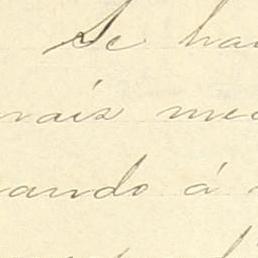 Se ha
mais me
ando á